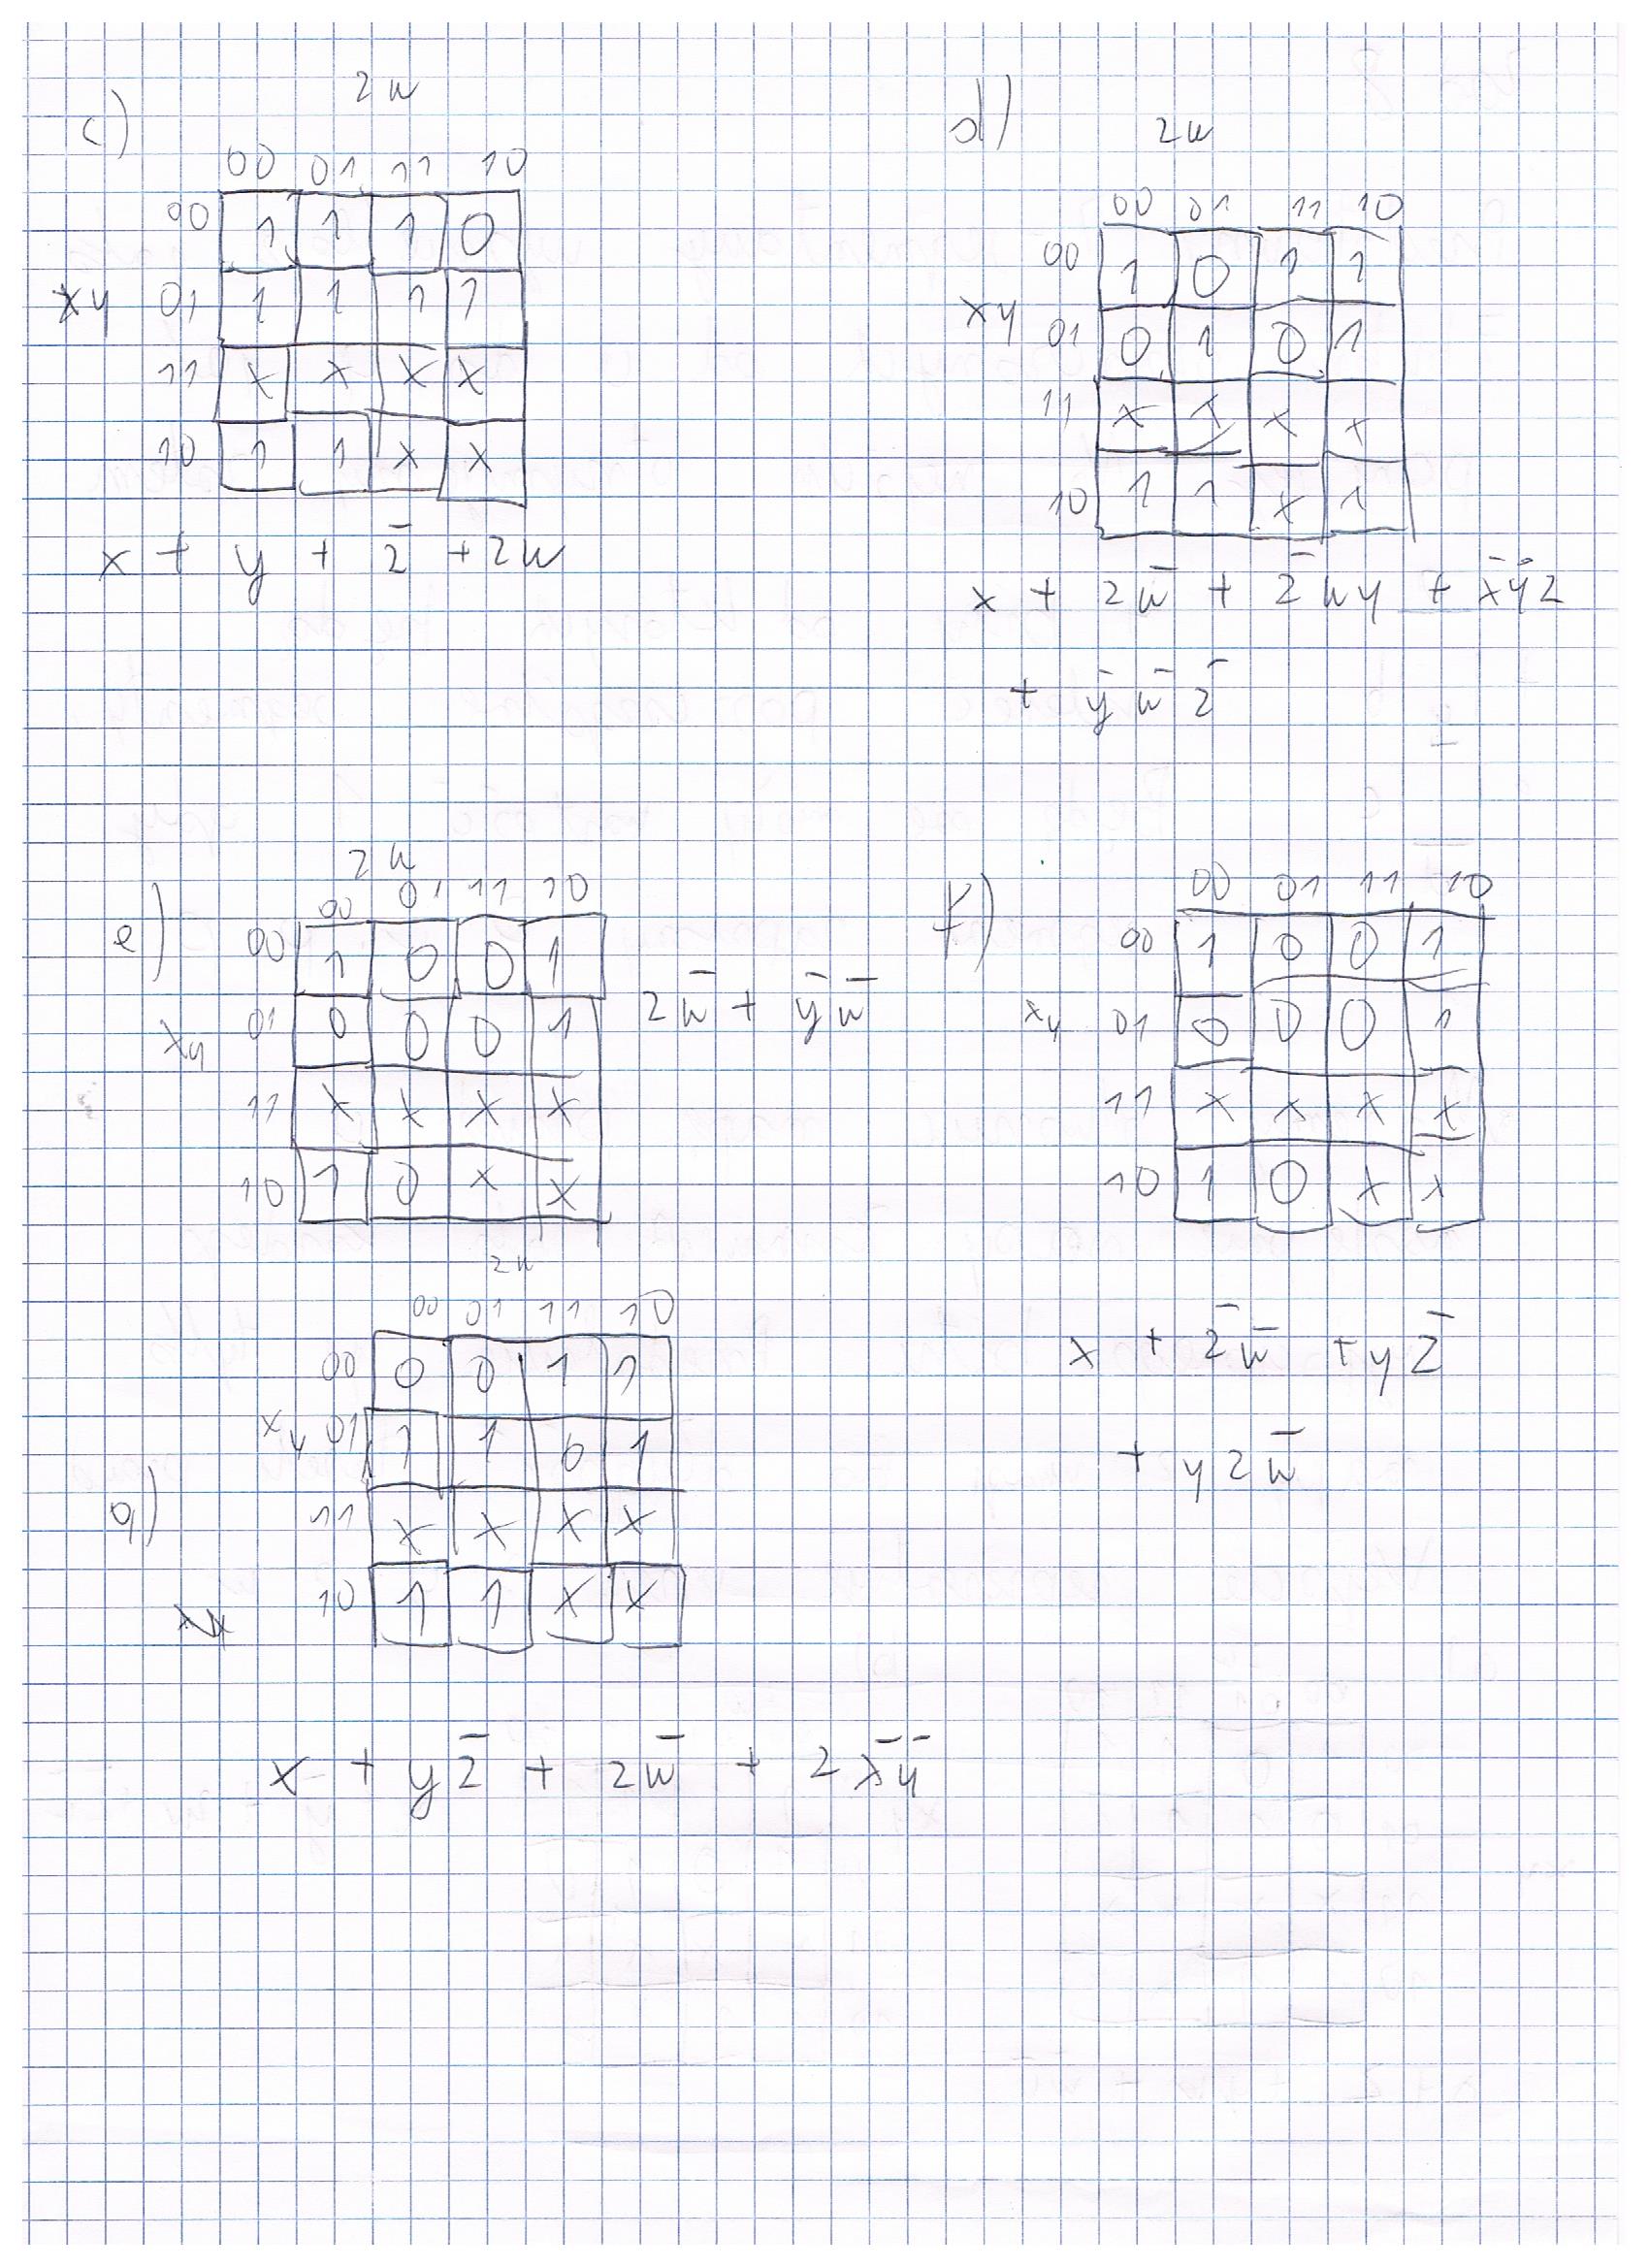 c)
zw
00 01 11 10
00 1 1 1 0
xy 01 1 1 1 1
11 x x x x
10 1 1 x x
x + y + z̄ + zw
d)
zw
00 01 11 10
00 1 0 1 1
xy 01 0 1 0 1
11 x x x x
10 1 1 x 1
x + zw̄ + z̄wy + x̄ȳz
+ ȳw̄z̄
e)
zw
00 01 11 10
00 1 0 0 1
xy 01 0 0 0 1
11 x x x x
10 1 0 x x
zw̄ + ȳw̄
f)
00 01 11 10
00 1 0 0 1
xy 01 0 0 0 1
11 x x x x
10 1 0 x x
x + z̄w̄ + yz̄
+ yzw̄
g)
zw
00 01 11 10
00 0 0 1 1
xy 01 1 1 0 1
11 x x x x
10 1 1 x x
x + yz̄ + zw̄ + zx̄ȳ